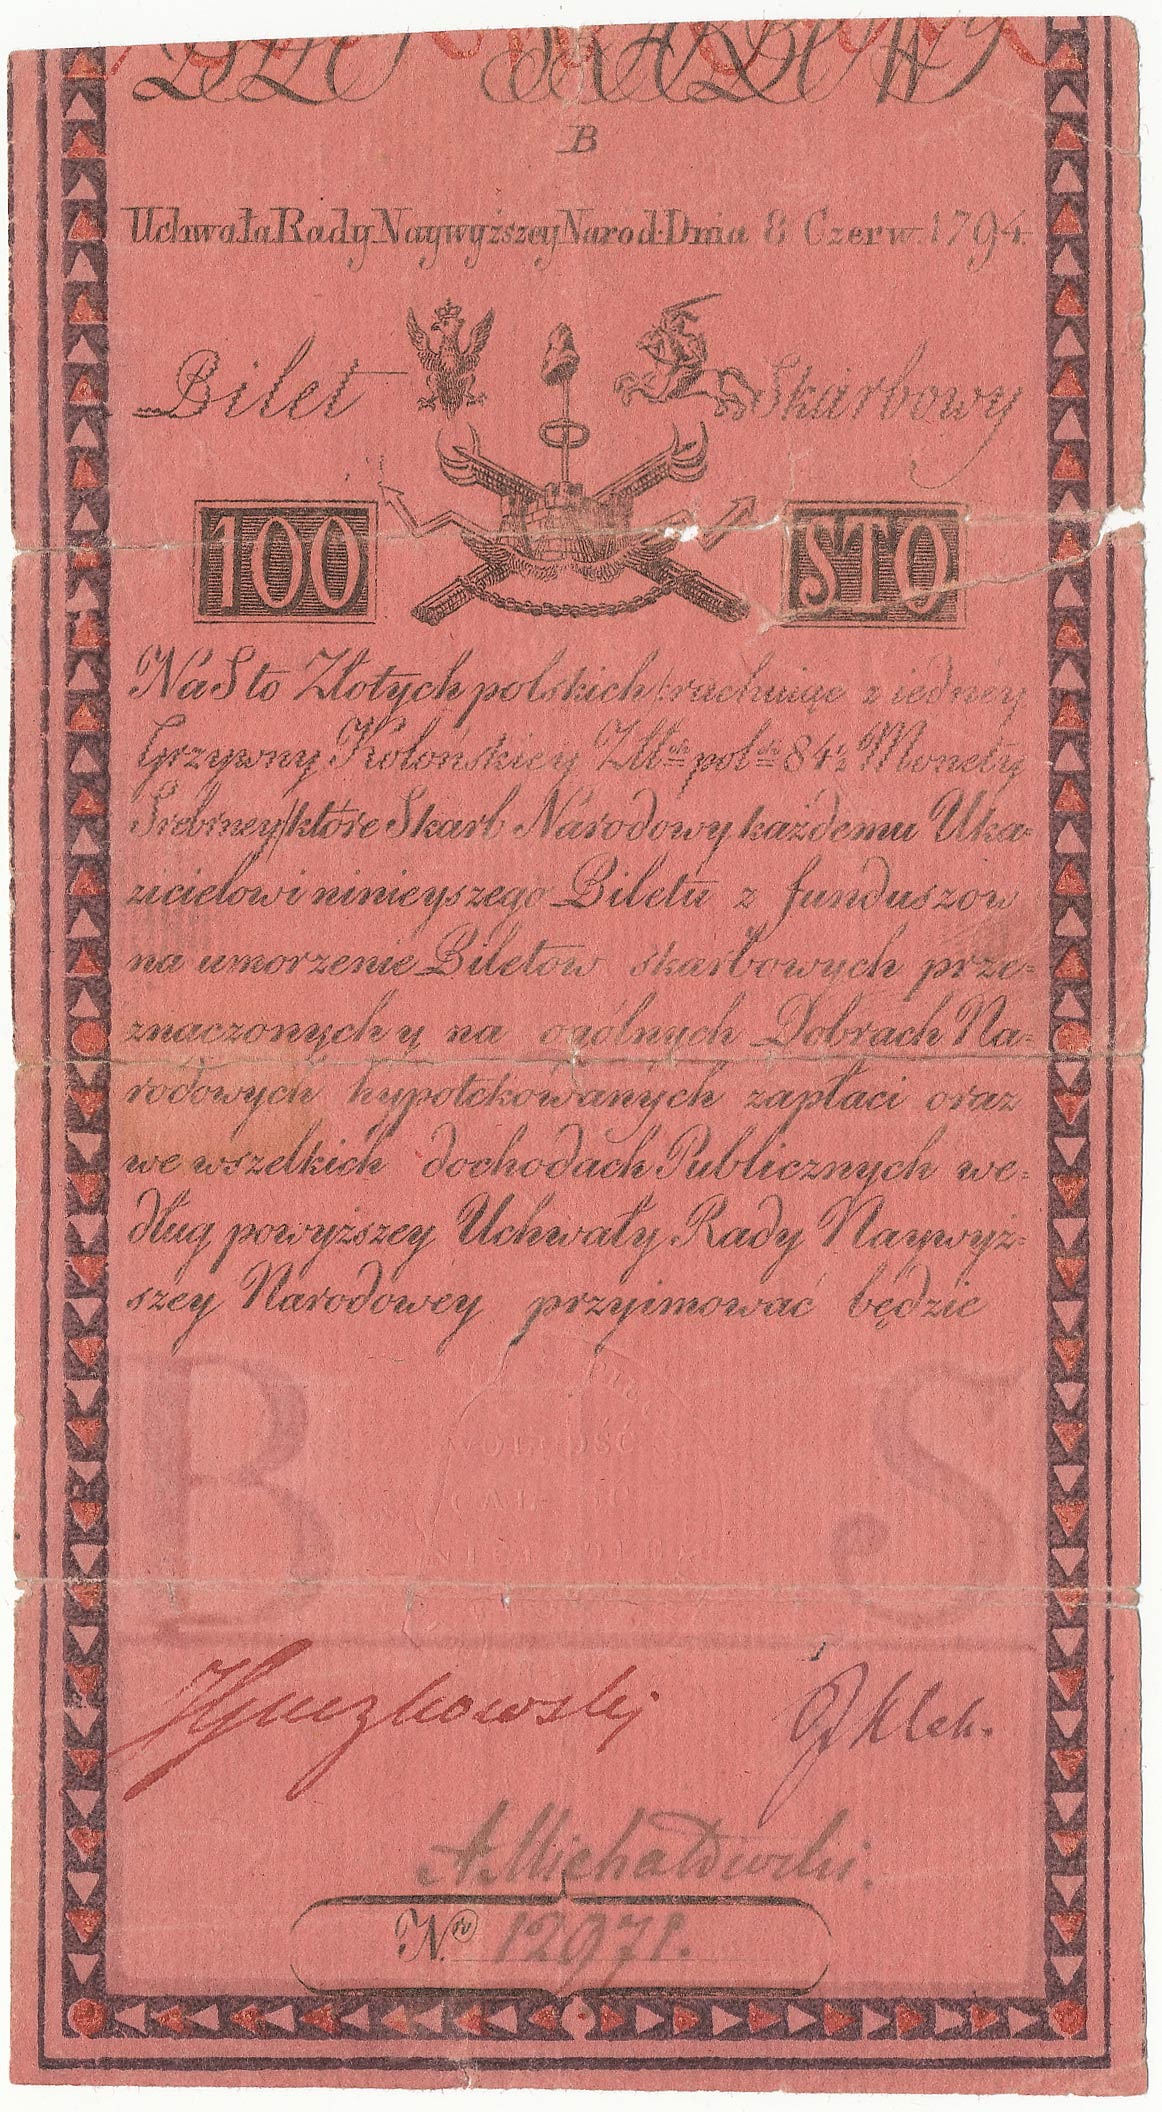 BILET SKARBOWY
B
Uchwała Rady Naywyższey Narod: Dnia 8 Czerw. 1794.
Bilet Skarbowy
100 STO
Na Sto Złotych polskich /:rachuiąc z iedney
Grzywny Kolońskiey Złł:ch pol:ch 84½ Monety
Srebrney/które Skarb Narodowy każdemu Uka-
zicielowi ninieyszego Biletu z funduszow
na umorzenie Biletow skarbowych prze-
znaczonych y na ogólnych Dobrach Na-
rodowych hypotekowanych zapłaci oraz
we wszelkich dochodach Publicznych we-
dług powyższey Uchwały Rady Naywyż-
szey Narodowey przyimować będzie
WOLNOŚĆ
CAŁOŚĆ
NIEPODLEGŁ
B S
A Michałowski.
N.ro 12971.